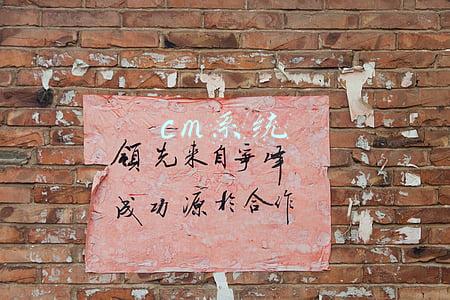 cm系统
领先来自争峰
成功源於合作